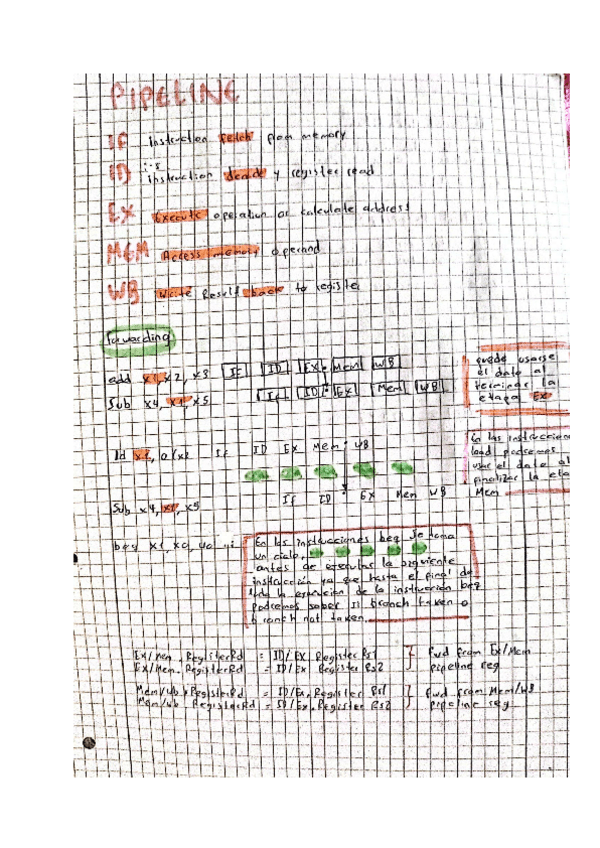 PIPELINE
IF instruction fetch from memory
ID instruction decode y register read
EX Execute operation or calculate address
MEM Access memory operand
WB Write Result back to registe
forwarding
add x1, x2, x3 IF ID EX Mem WB
Sub x4, x1, x5 If ID EX Mem WB
puede usarse
el dato al
terminar la
etapa Ex
ld x1, 0(x2 If ID Ex Mem WB
Sub x4, x1, x5 If ID Ex Mem WB
En las instruccione
load podremos
usar el dato al
finalizar la eta
Mem
beq x1, x0,
En las instrucciones beq Se toma
un ciclo,
antes de ejecutar la siguiente
instrucción ya que hasta el final de
toda la ejecucion de la instruccion beq
podremos saber si branch taken o
branch not taken.
Ex/Mem . RegisterRd = ID/EX . Register Rs1
Ex/Mem. RegisterRd = ID/Ex Register Rs2
fwd from Ex/Mem
pipeline reg
Mem/wb . RegisterRd = ID/Ex. Register Rs1
Mem/wb RegisterRd = ID/Ex . Register Rs2
fwd from Mem/WB
pipeline reg